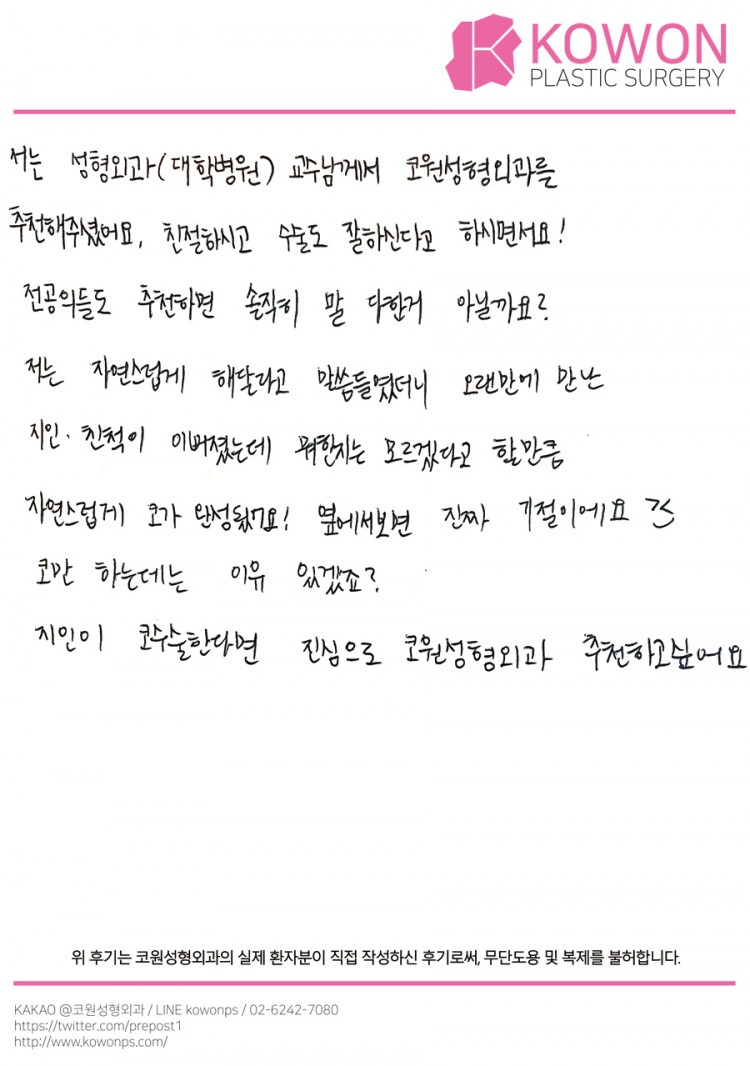 KOWON
PLASTIC SURGERY
저는 성형외과(대학병원) 교수님께서 코원성형외과를
추천해주셨어요, 친절하시고 수술도 잘하신다고 하시면서요!
전공의들도 추천하면 솔직히 말 다한거 아닐까요?
저는 자연스럽게 해달라고 말씀들였더니 오랜만에 만난
지인·친척이 이뻐졌는데 뭐한지는 모르겠다고 할만큼
자연스럽게 코가 완성됐어요! 옆에서보면 진짜 기절이에요 ㅋㅋ
코만 하는데는 이유 있겠죠?
지인이 코수술한다면 진심으로 코원성형외과 추천하고싶어요
위 후기는 코원성형외과의 실제 환자분이 직접 작성하신 후기로써, 무단도용 및 복제를 불허합니다.
KAKAO @코원성형외과 / LINE kowonps / 02-6242-7080
https://twitter.com/prepost1
http://www.kowonps.com/